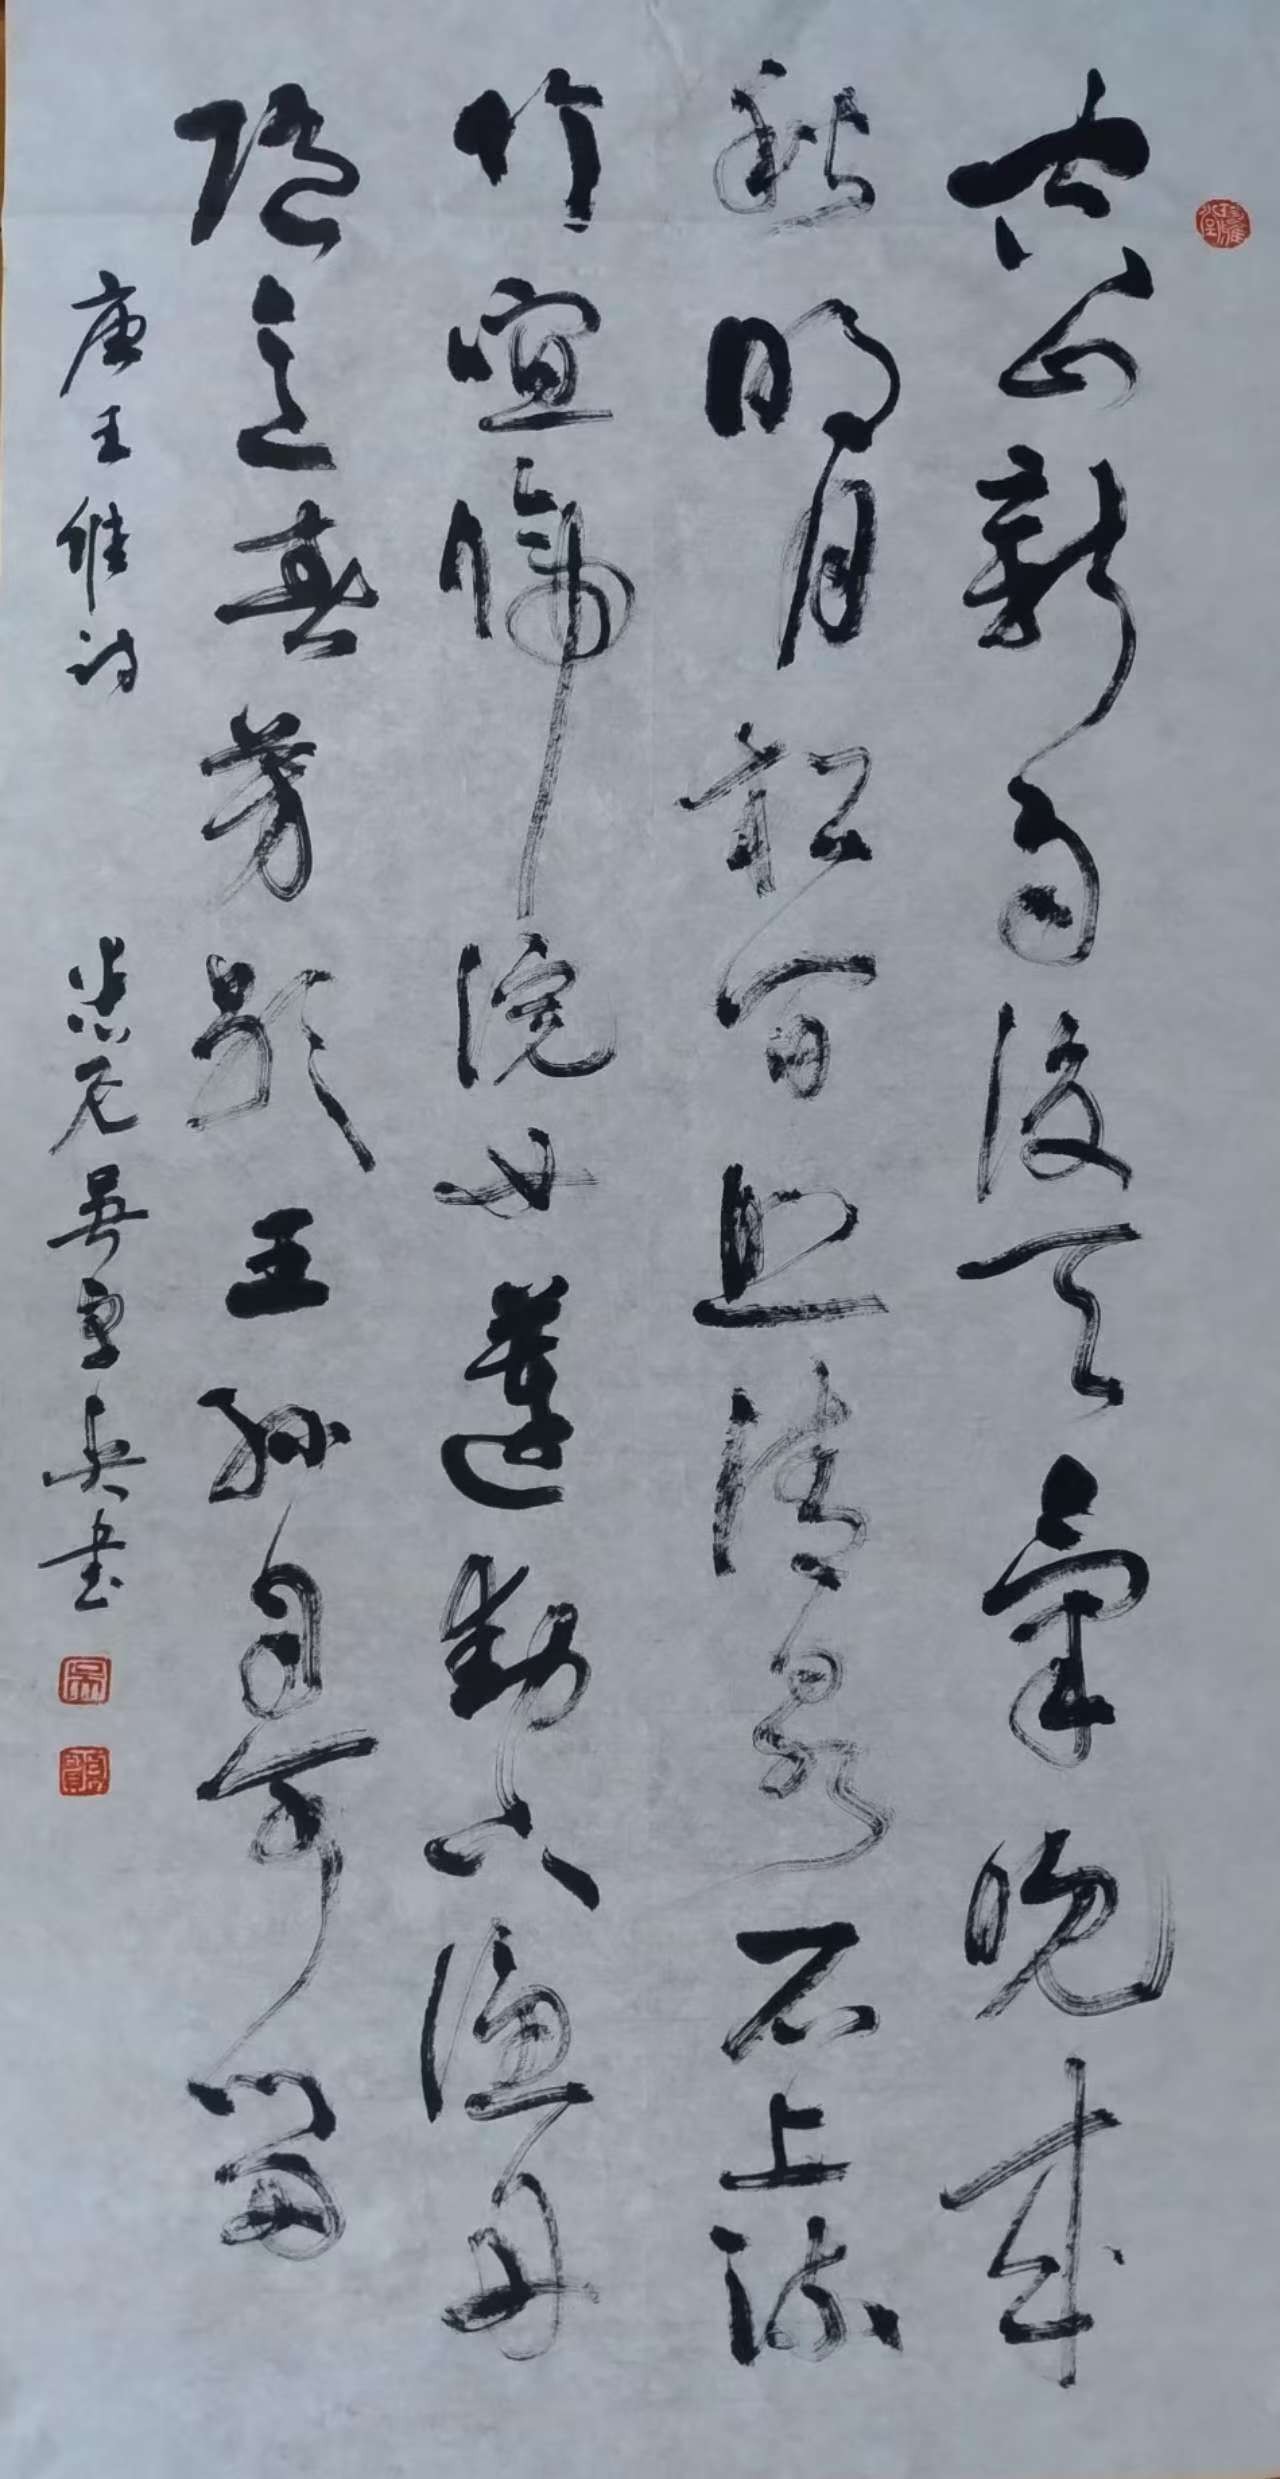 空山新雨後天氣晚来
秋明月松间照清泉石上流
竹喧歸浣女蓮動下漁舟
隨意春芳歇王孫自可留
唐王維诗
吴 书